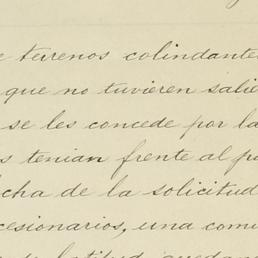 e terrenos colindante
que no tuvieren salid
se les concede por la
s tenian frente al p
cha de la solicitud
cesionarios, una com
latitud, quedan